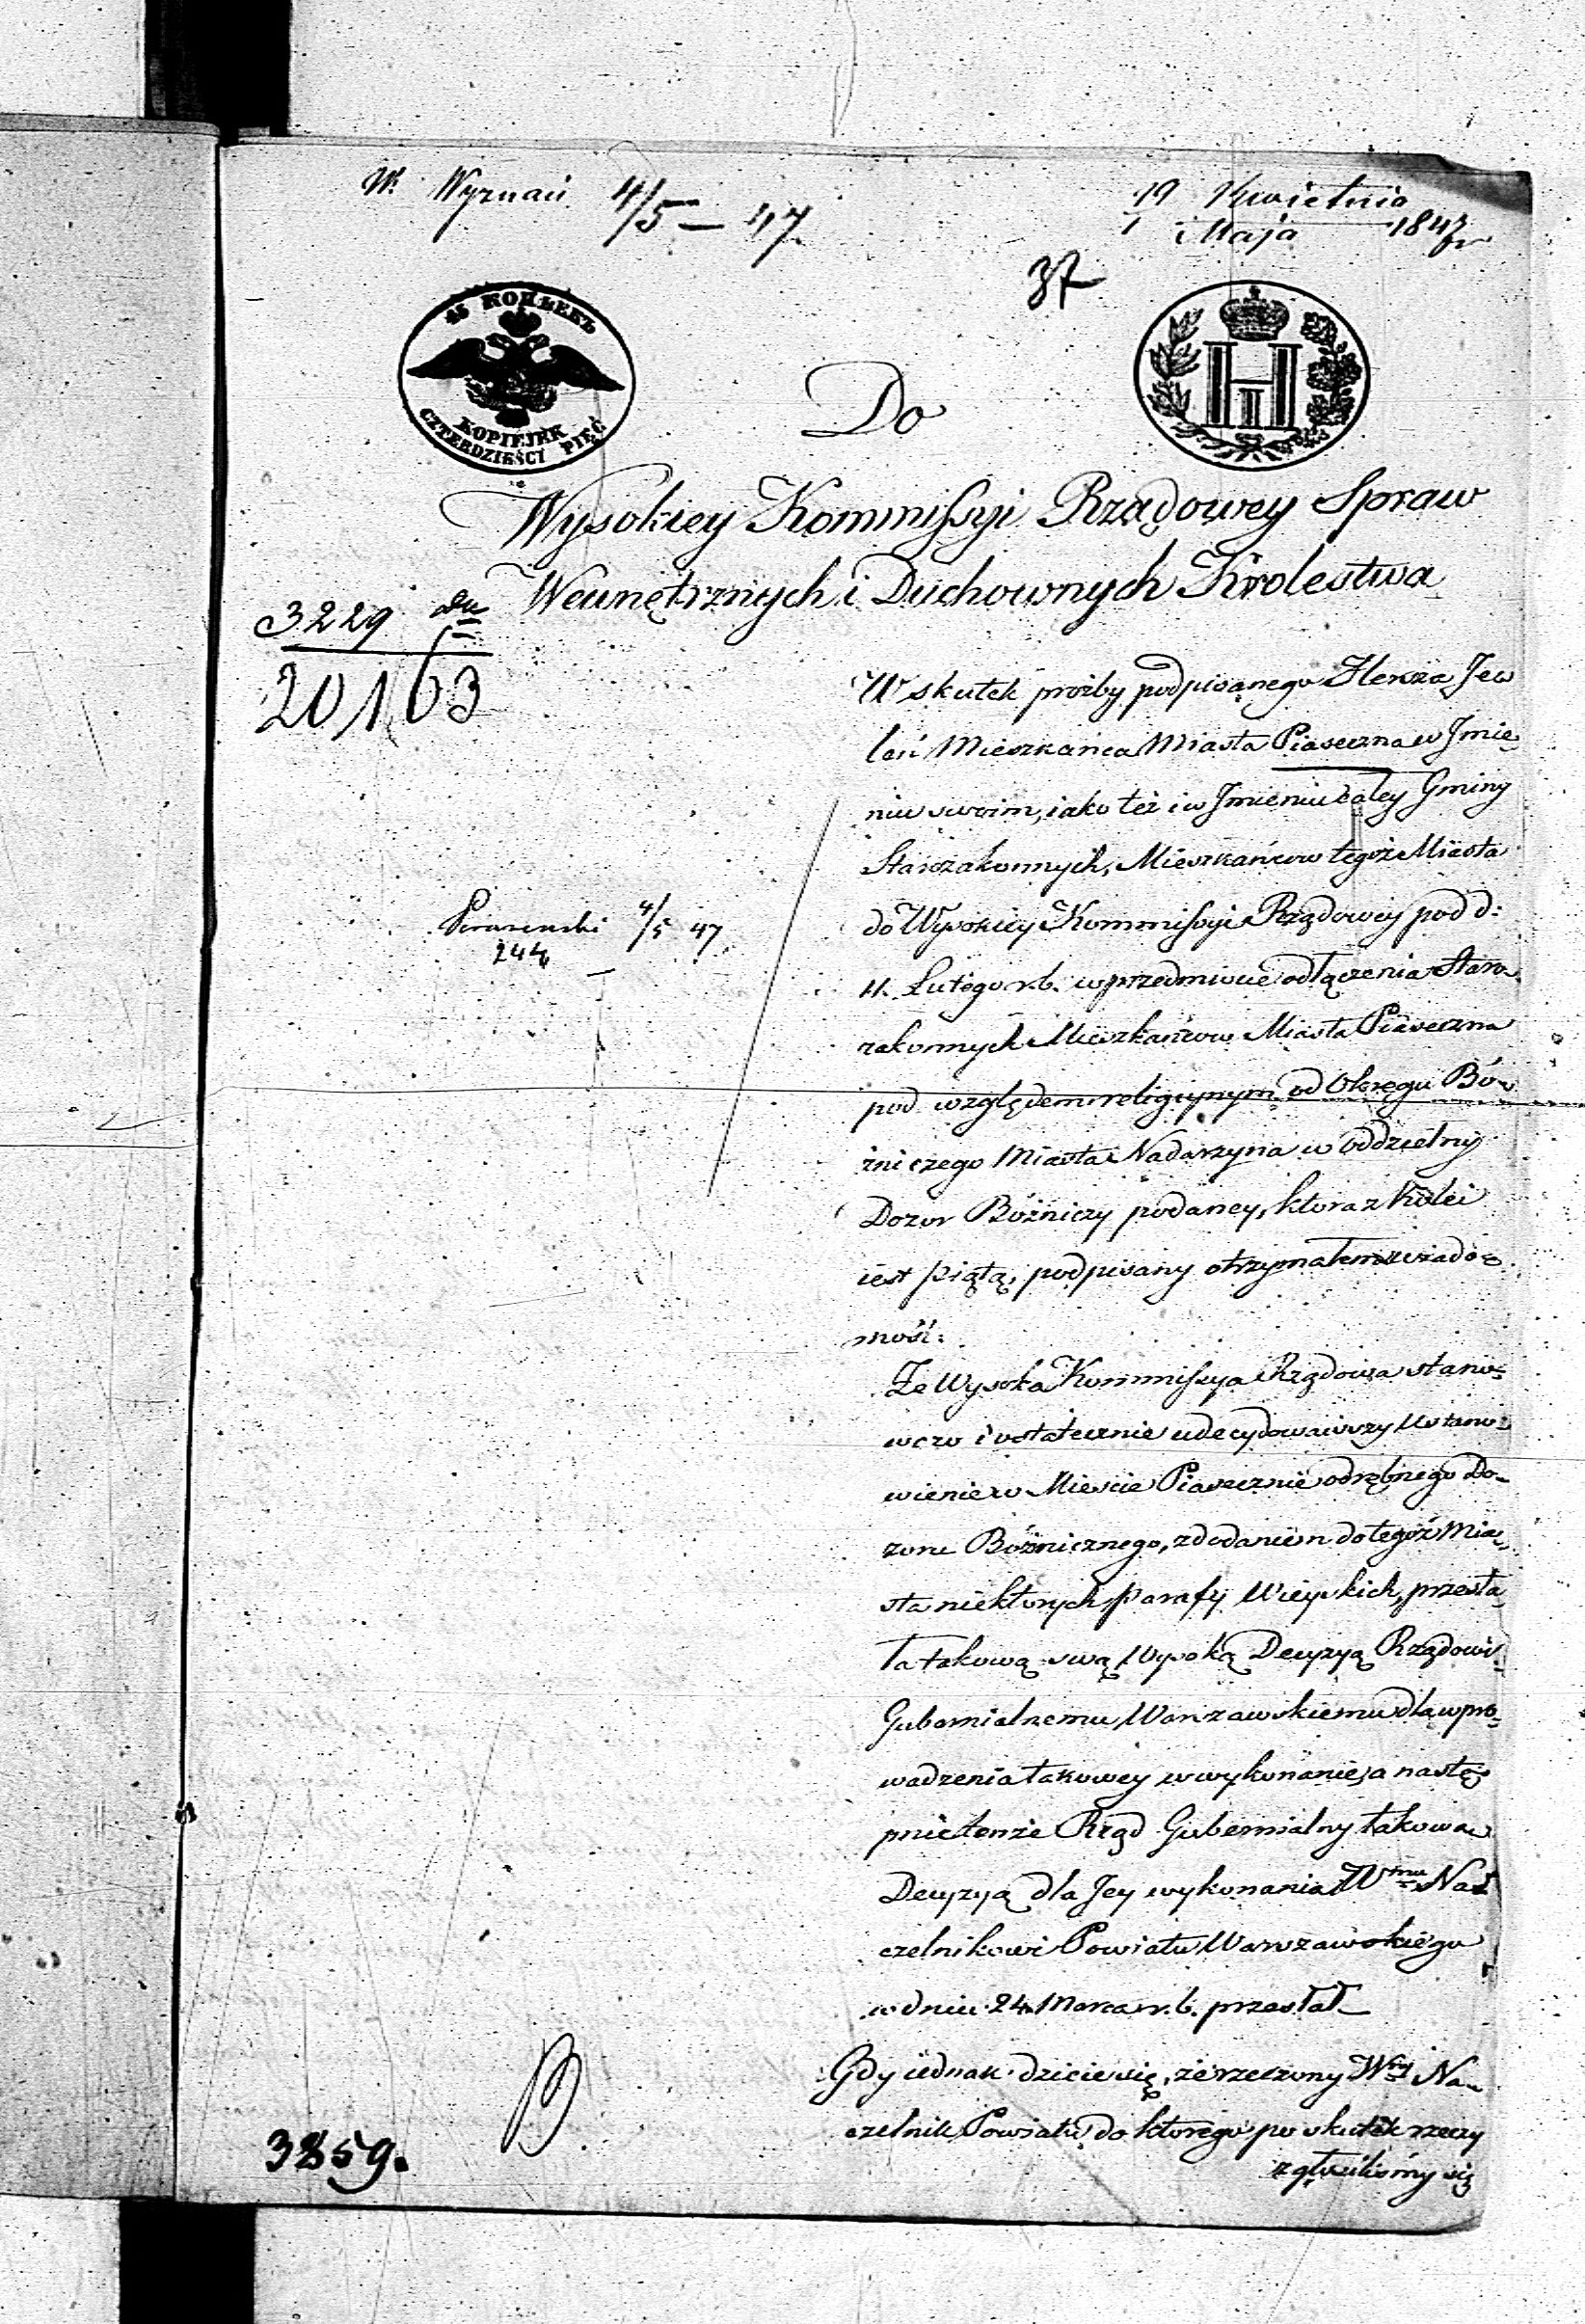 W. Wyznań 4/5 — 47
19 Kwietnia
1 Maja 1847 r
37
45 КОПѢЕКЪ
KOPIEJEK
CZTERDZIEŚCI PIĘĆ
H I
Do
Wysokiey Kommissyi Rządowey Spraw
Wewnętrznych i Duchownych Krolestwa
3229
20163
W skutek proźby podpisanego Jew
laś Mieszkańca Miasta Piaseczna w Jmie„
niu swoim, iako też i w Jmieniu całey Gminy
Starozakonnych, Mieszkańcow tegoż Miasta
do Wysokiey Kommissyi Rządowey pod d:
11. Lutego r. b. w przedmiocie odłączenia Staro„
zakonnych Mieszkańcow Miasta Piaseczna
pod względem religiynym od Okręgu Bó„
żniczego Miasta Nadarzyna w oddzielny
Dozor Bóżniczy podaney, ktora z kolei
iest piątą, podpisany otrzymałem wiado„
mość:
4/5 47
244
Że Wysoka Kommissya Rządowa stano„
wczo i ostatecznie udecydowawszy Ustano„
wienie w Miescie Piasecznie odrębnego Do„
zoru Bóżnicznego, z dodaniem do tegoż Mia„
sta niektorych parafij Wieyskich, przesła„
ła takową swą Wysoką Decyzyą Rządowi
Gubernialnemu Warszawskiemu dla wpro„
wadzenia takowey w wykonanie, a nastę„
pnie tenże Rząd Gubernialny takową
Decyzyą dla Jey wykonania Wmu Na„
czelnikowi Powiatu Warszawskiego
w dniu 24 Marca r. b. przesłał_
Gdy iednak dzieie się, że rzeczony Wny Na„
czelnik Powiatu do ktorego po skutek rzeczy
zgłosiliśmy się
3859.